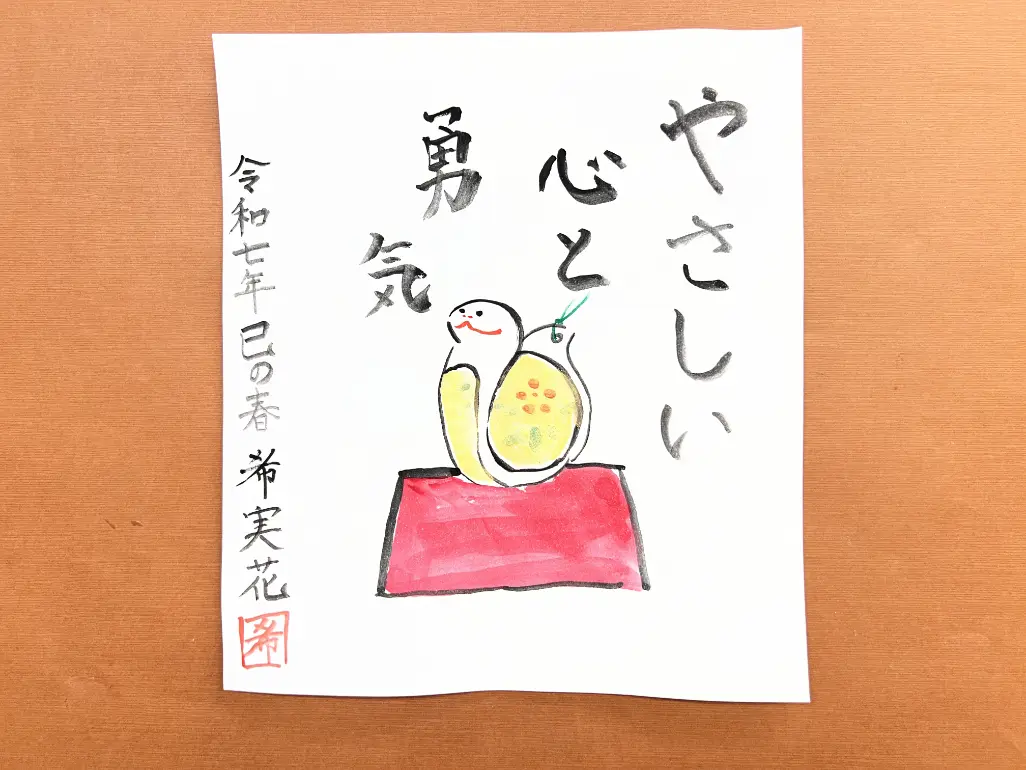 やさしい
心と
勇気
令和七年巳の春 希実花
希